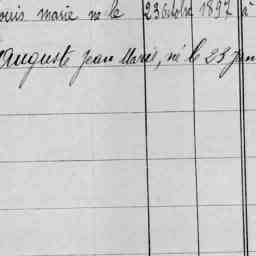 ouis marie né le 23 octobre 1897 à
Auguste Jean Marie, né le 23 jan